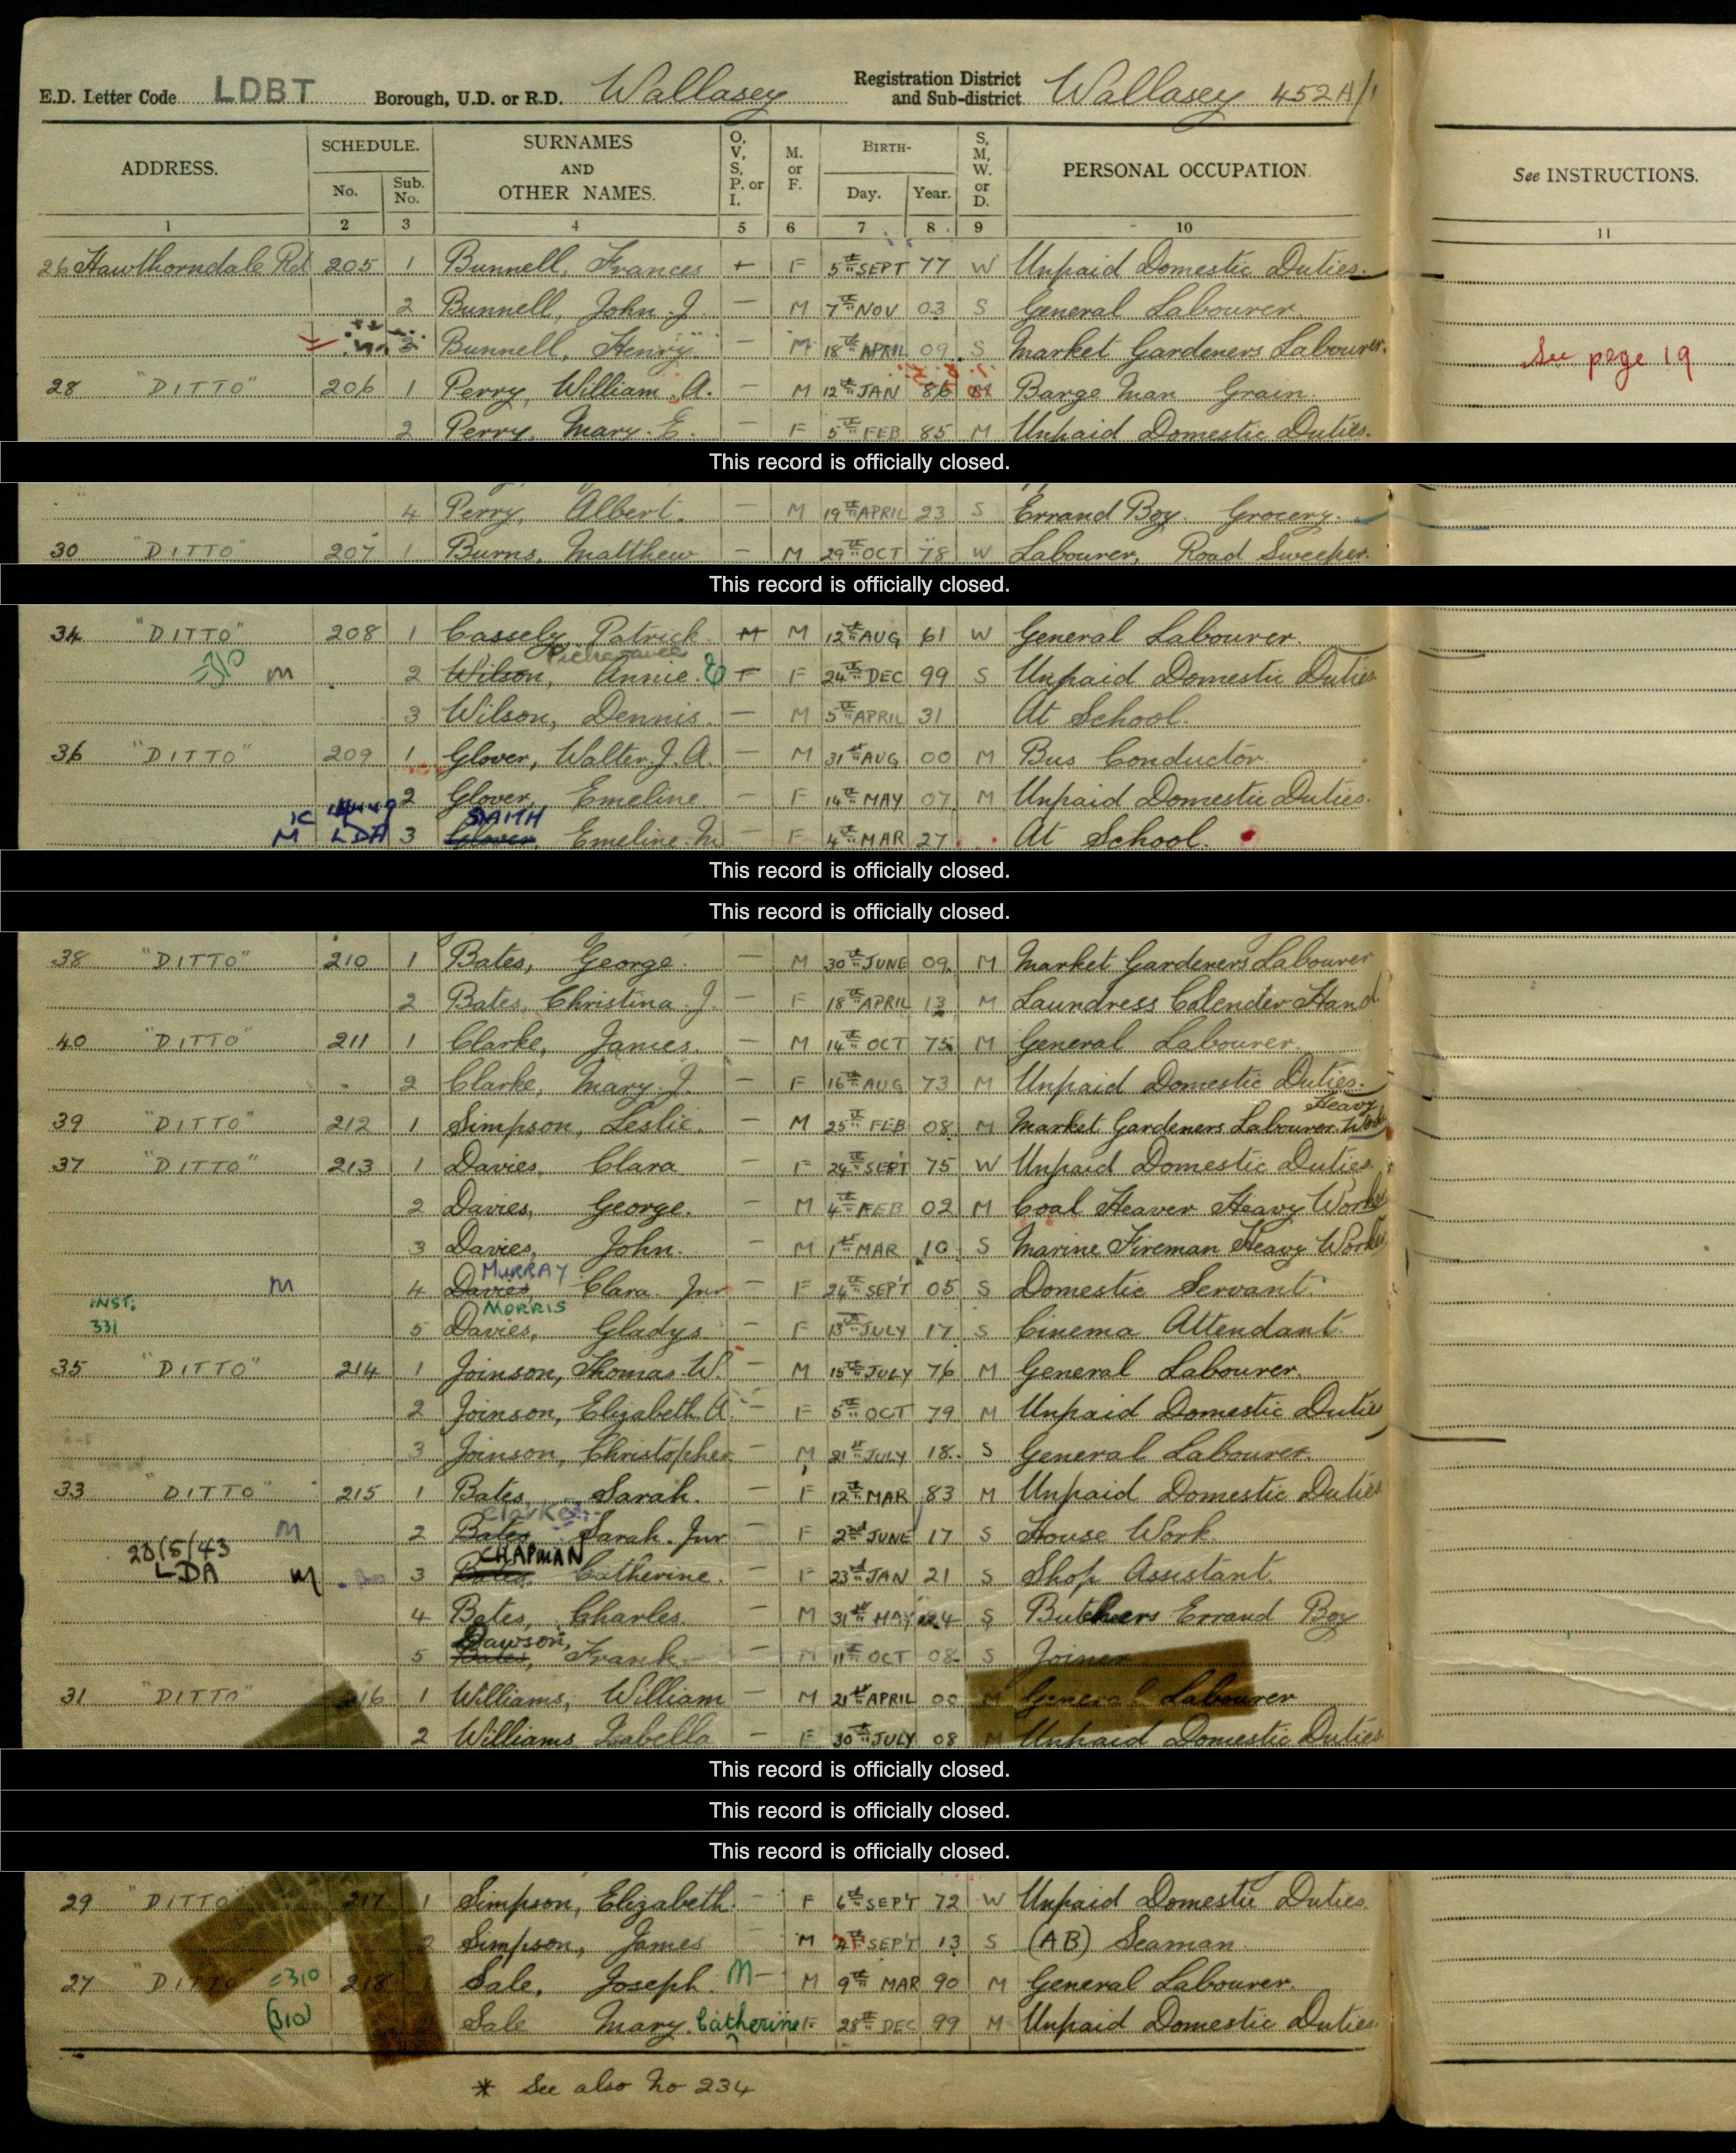 E.D. Letter Code LDBT Borough, U.D. or R.D. Wallasey Registration District and Sub-district Wallasey 452A/1
ADDRESS. SCHEDULE. No. Sub. No. SURNAMES AND OTHER NAMES. O, V, S, P. or I. M. or F. BIRTH- Day. Year. S, M, W. or D. PERSONAL OCCUPATION. See INSTRUCTIONS.
1 2 3 4 5 6 7 8 9 10 11
26 Hawthorndale Rd 205 1 Bunnell, Frances F 5th SEPT 77 W Unpaid Domestic Duties.
2 Bunnell, John J. — M 7th NOV 03 S General Labourer
3 Bunnell, Henry — M 18th APRIL 09 S Market Gardeners Labourer. See page 19
28 "DITTO" 206 1 Perry, William A. — M 12th JAN 86 M Barge Man Grain.
2 Perry, Mary E. — F 5th FEB 85 M Unpaid Domestic Duties.
This record is officially closed.
4 Perry, Albert. — M 19th APRIL 23 S Errand Boy. Grocery.
30 "DITTO" 207 1 Burns, Matthew — M 29th OCT 78 W Labourer, Road Sweeper.
This record is officially closed.
34 "DITTO" 208 1 Cassely Patrick M 12th AUG 61 W General Labourer.
=310 m 2 Wilson, Annie. F 24th DEC 99 S Unpaid Domestic Duties
3 Wilson, Dennis. — M 5th APRIL 31 At School.
36 "DITTO" 209 1 Glover, Walter J. A. — M 31st AUG 00 M Bus Conductor.
2 Glover, Emeline. — F 14th MAY 07 M Unpaid Domestic Duties.
SMITH
M LDA 3 Glover, Emeline M — F 4th MAR 27 At School.
This record is officially closed.
This record is officially closed.
38 "DITTO" 210 1 Bates, George. — M 30th JUNE 09 M Market Gardeners Labourer
2 Bates, Christina J. — F 18th APRIL 13 M Laundress Calender Hand
40 "DITTO" 211 1 Clarke, James. — M 14th OCT 75 M General Labourer.
2 Clarke, Mary J. — F 16th AUG 73 M Unpaid Domestic Duties.
39 "DITTO" 212 1 Simpson, Leslie. — M 25th FEB 08 M Market Gardeners Labourer. Heavy Work
37 "DITTO" 213 1 Davies, Clara — F 24th SEPT 75 W Unpaid Domestic Duties.
2 Davies, George. — M 4th FEB 02 M Coal Heaver Heavy Work
3 Davies, John. — M 1st MAR 10 S Marine Fireman Heavy Work
MURRAY
m 4 Davies, Clara Jnr — F 24th SEPT 05 S Domestic Servant
INST: 331 MORRIS
5 Davies, Gladys — F 13th JULY 17 S Cinema Attendant.
35 "DITTO" 214 1 Joinson, Thomas W. — M 15th JULY 76 M General Labourer.
2 Joinson, Elizabeth A. — F 5th OCT 79 M Unpaid Domestic Duties
3 Joinson, Christopher — M 21st JULY 18 S General Labourer.
33 "DITTO" 215 1 Bates, Sarah. — F 12th MAR 83 M Unpaid Domestic Duties
Clarke
m 2 Bates Sarah. Jnr — F 2nd JUNE 17 S House Work.
28/5/43 CHAPMAN
LDA m 3 Bates, Catherine. — F 23rd JAN 21 S Shop Assistant.
4 Bates, Charles. — M 31st MAY 24 S Butchers Errand Boy
Dawson,
5 Bates, Frank. — M 11th OCT 08 S Joiner
31 "DITTO" 216 1 Williams, William — M 21st APRIL 00 M General Labourer
2 Williams Isabella — F 30th JULY 08 M Unpaid Domestic Duties
This record is officially closed.
This record is officially closed.
This record is officially closed.
29 "DITTO" 217 1 Simpson, Elizabeth. — F 6th SEPT 72 W Unpaid Domestic Duties.
2 Simpson, James M SEPT 13 S (AB) Seaman.
27 "DITTO =310 218 Sale, Joseph. m — M 9th MAR 90 M General Labourer.
(310) Sale Mary. Catherine F 28th DEC 99 M Unpaid Domestic Duties.
* See also No 234